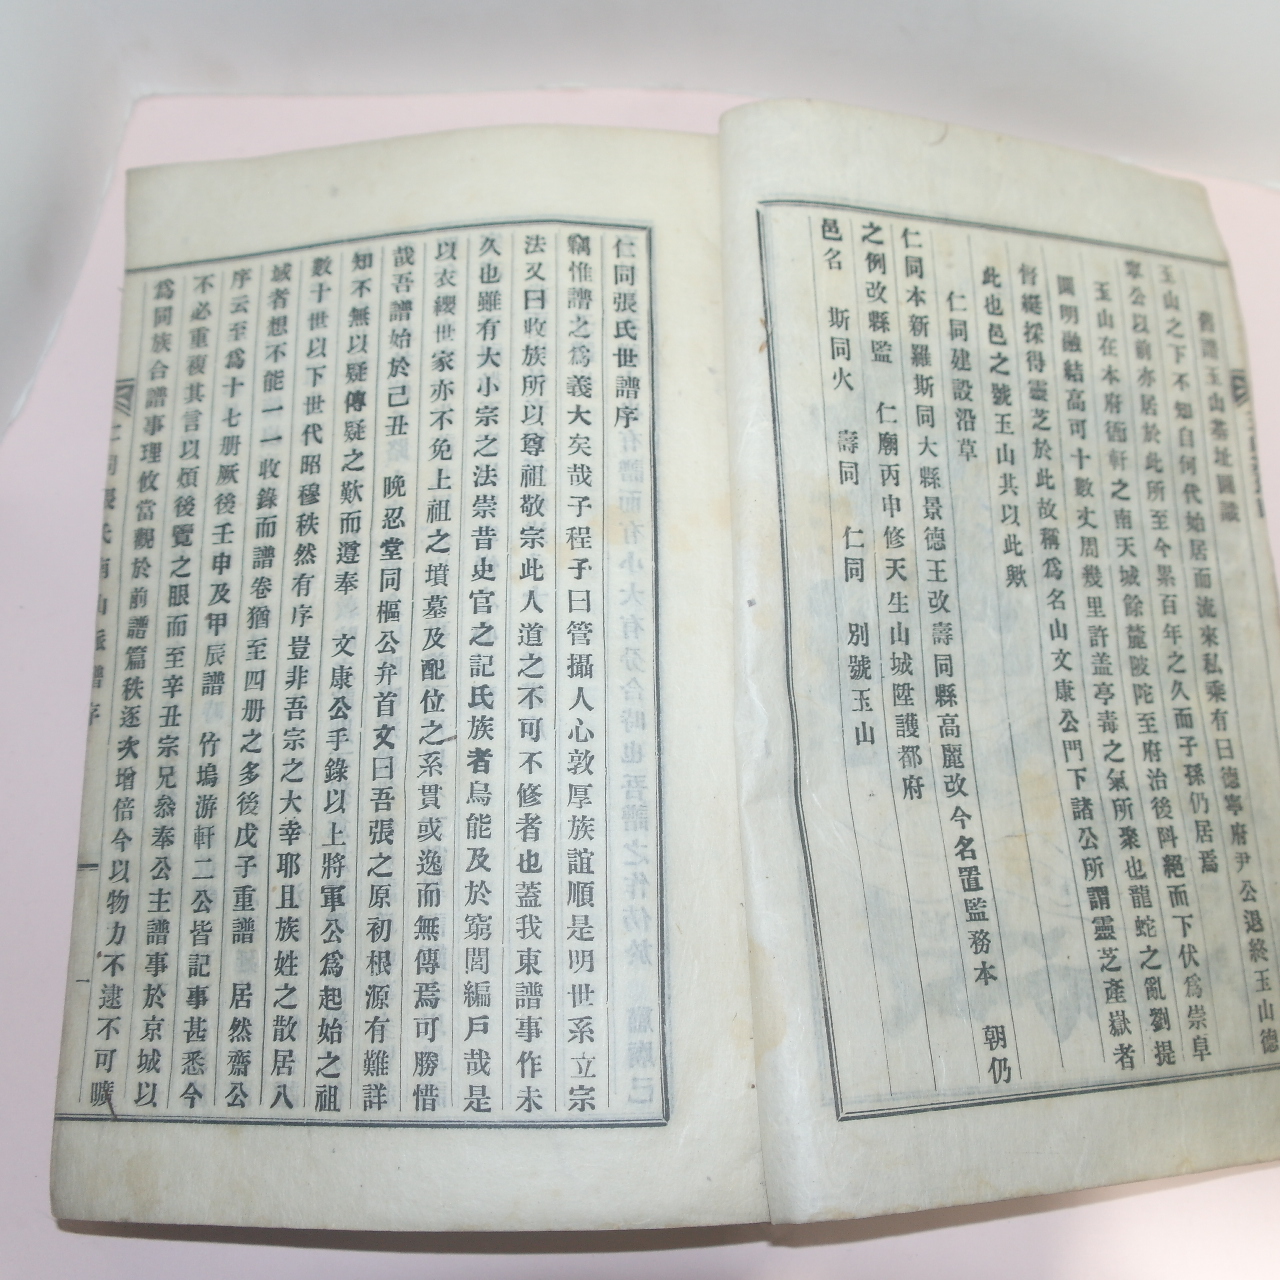 舊譜玉山基址圖識
玉山之下不知自何代始居而流來私乘有曰德寧府尹公退終玉山德
寧公以前亦居於此所至今累百年之久而子孫仍居焉
玉山在本府衙軒之南天城餘麓陂陀至府治後阧絕而下伏為崇阜
圓明融結高可十數丈周幾里許盖亭毒之氣所聚也龍蛇之亂劉提
督綎採得靈芝於此故稱為名山文康公門下諸公所謂靈芝產嶽者
此也邑之號玉山其以此歟
仁同建設沿革
仁同本新羅斯同大縣景德王改壽同縣高麗改今名置監務本 朝仍
之例改縣監 仁廟丙申修天生山城陞護都府
邑名 斯同火 壽同 仁同 別號玉山
仁同張氏世譜序
竊惟譜之為義大矣哉子程子曰管攝人心敦厚族誼順是明世系立宗
法又曰收族所以尊祖敬宗此人道之不可不修者也蓋我東譜事作未
久也雖有大小宗之法崇昔史官之記氏族者烏能及於窮閭編戶哉是
以衣纓世家亦不免上祖之墳墓及配位之系貫或逸而無傳焉可勝惜
哉吾譜始於己丑 晚忍堂同樞公弁首文曰吾張之原初根源有難詳
知不無以疑傳疑之歎而遵奉 文康公手錄以上將軍公為起始之祖
數十世以下世代昭穆秩然有序豈非吾宗之大幸耶且族姓之散居八
域者想不能一一收錄而譜卷猶至四册之多後戊子重譜 居然齋公
序云至為十七册厥後壬申及甲辰譜 竹塢游軒二公皆記事甚悉今
不必重複其言以煩後覽之眼而至辛丑宗兄叅奉公主譜事於京城以
為同族合譜事理攸當觀於前譜篇秩逐次增倍今以物力不逮不可曠
仁同張氏南山派譜序
一